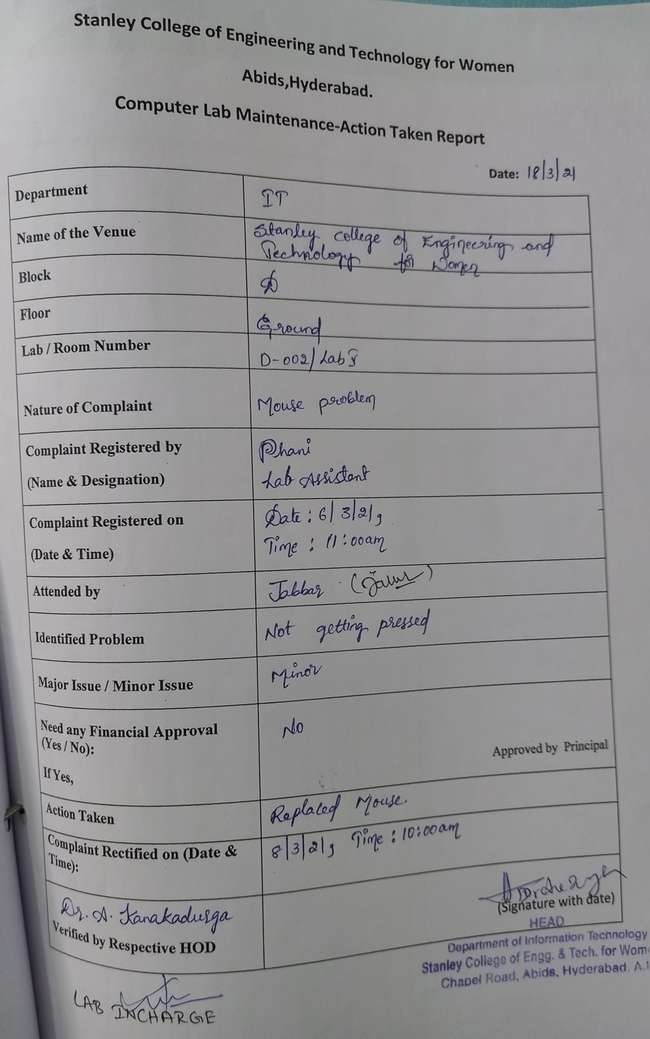 Stanley College of Engineering and Technology for Women
Abids,Hyderabad.
Computer Lab Maintenance-Action Taken Report
Date: 18/3/21
Department
IT
Name of the Venue
Stanley college of Engineering and
Technology for Women
Block
D
Floor
Ground
Lab / Room Number
D-002/Lab
Nature of Complaint
Mouse problem
Complaint Registered by
(Name & Designation)
Phani
Lab Assistant
Complaint Registered on
(Date & Time)
Date : 6/3/21,
Time : 11:00am
Attended by
Jabbar
Identified Problem
Not getting pressed
Major Issue / Minor Issue
Minor
Need any Financial Approval
(Yes / No):
If Yes,
No
Approved by Principal
Action Taken
Replaced Mouse.
Complaint Rectified on (Date &
Time):
8/3/21, Time : 10:00am
Dr. A. Kanakadurga
Verified by Respective HOD
(Signature with date)
HEAD
Department of Information Technology
Stanley College of Engg. & Tech. for Wom
Chapel Road, Abids, Hyderabad. A.
LAB INCHARGE